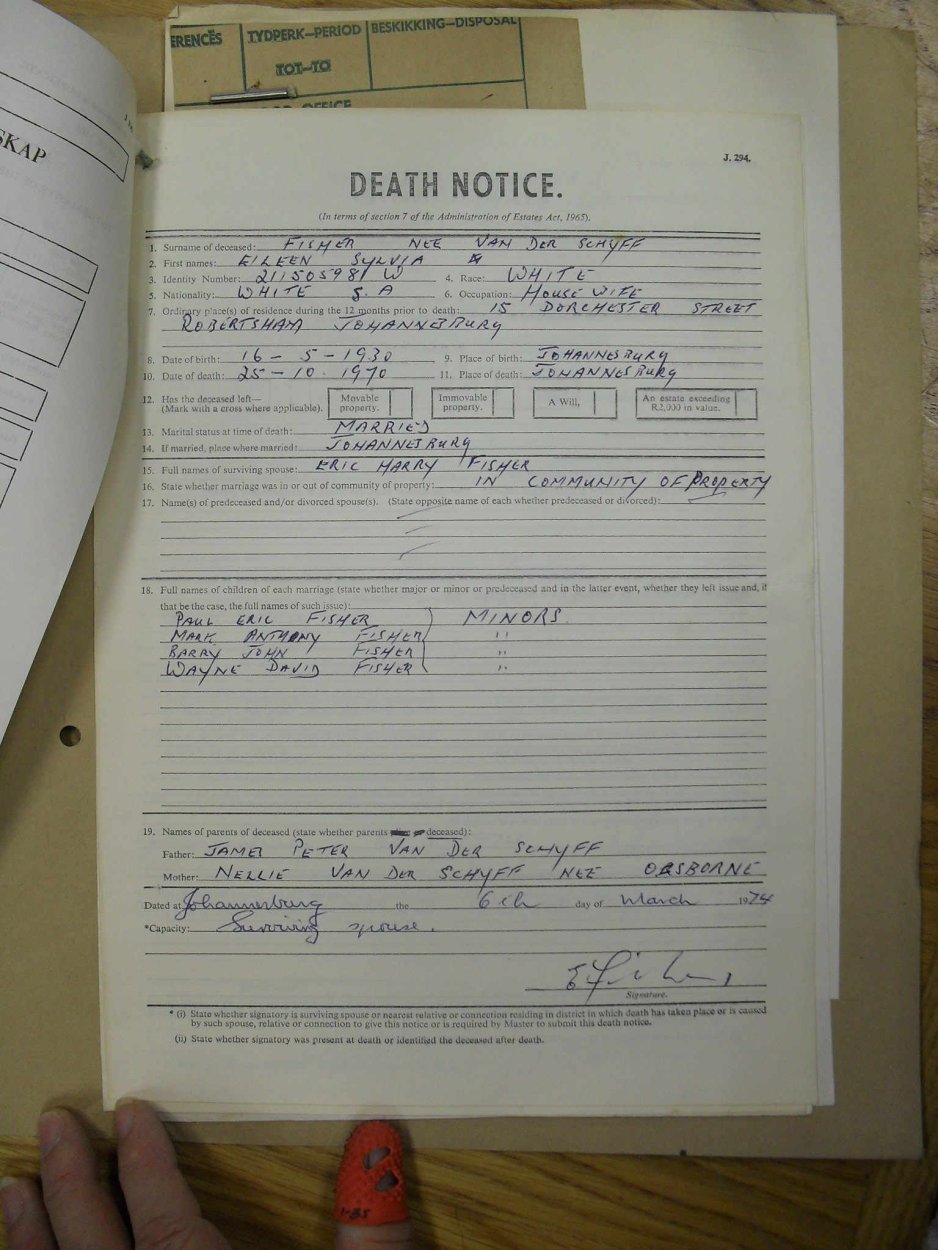 SKAP
ERENCES
TYDPERK—PERIOD
BESKIKKING—DISPOSAL
TOT—TO
OFFICE
J. 294.
DEATH NOTICE.
(In terms of section 7 of the Administration of Estates Act, 1965).
1. Surname of deceased: FISHER NEE VAN DER SCHYFF
2. First names: EILEEN SYLVIA
3. Identity Number: 211505981 W 4. Race: WHITE
5. Nationality: WHITE S.A 6. Occupation: HOUSE WIFE
7. Ordinary place(s) of residence during the 12 months prior to death: 15 DORCHESTER STREET
ROBERTSHAM JOHANNESBURG
8. Date of birth: 16 - 5 - 1930 9. Place of birth: JOHANNESBURG
10. Date of death: 25 - 10 - 1970 11. Place of death: JOHANNESBURG
12. Has the deceased left— Movable Immovable A Will, An estate exceeding
(Mark with a cross where applicable). property. property. R2,000 in value.
13. Marital status at time of death: MARRIED
14. If married, place where married: JOHANNESBURG
15. Full names of surviving spouse: ERIC HARRY FISHER
16. State whether marriage was in or out of community of property: IN COMMUNITY OF PROPERTY
17. Name(s) of predeceased and/or divorced spouse(s). (State opposite name of each whether predeceased or divorced):
18. Full names of children of each marriage (state whether major or minor or predeceased and in the latter event, whether they left issue and, if
that be the case, the full names of such issue):
PAUL ERIC FISHER MINORS.
MARK ANTHONY FISHER "
BARRY JOHN FISHER "
WAYNE DAVID FISHER "
19. Names of parents of deceased (state whether parents deceased):
Father: JAMES PETER VAN DER SCHYFF
Mother: NELLIE VAN DER SCHYFF NEE ORSBORNE
Dated at Johannesburg the 6th day of March 1974
*Capacity: Surviving spouse.
E Fisher
Signature.
* (i) State whether signatory is surviving spouse or nearest relative or connection residing in district in which death has taken place or is caused
by such spouse, relative or connection to give this notice or is required by Master to submit this death notice.
(ii) State whether signatory was present at death or identified the deceased after death.